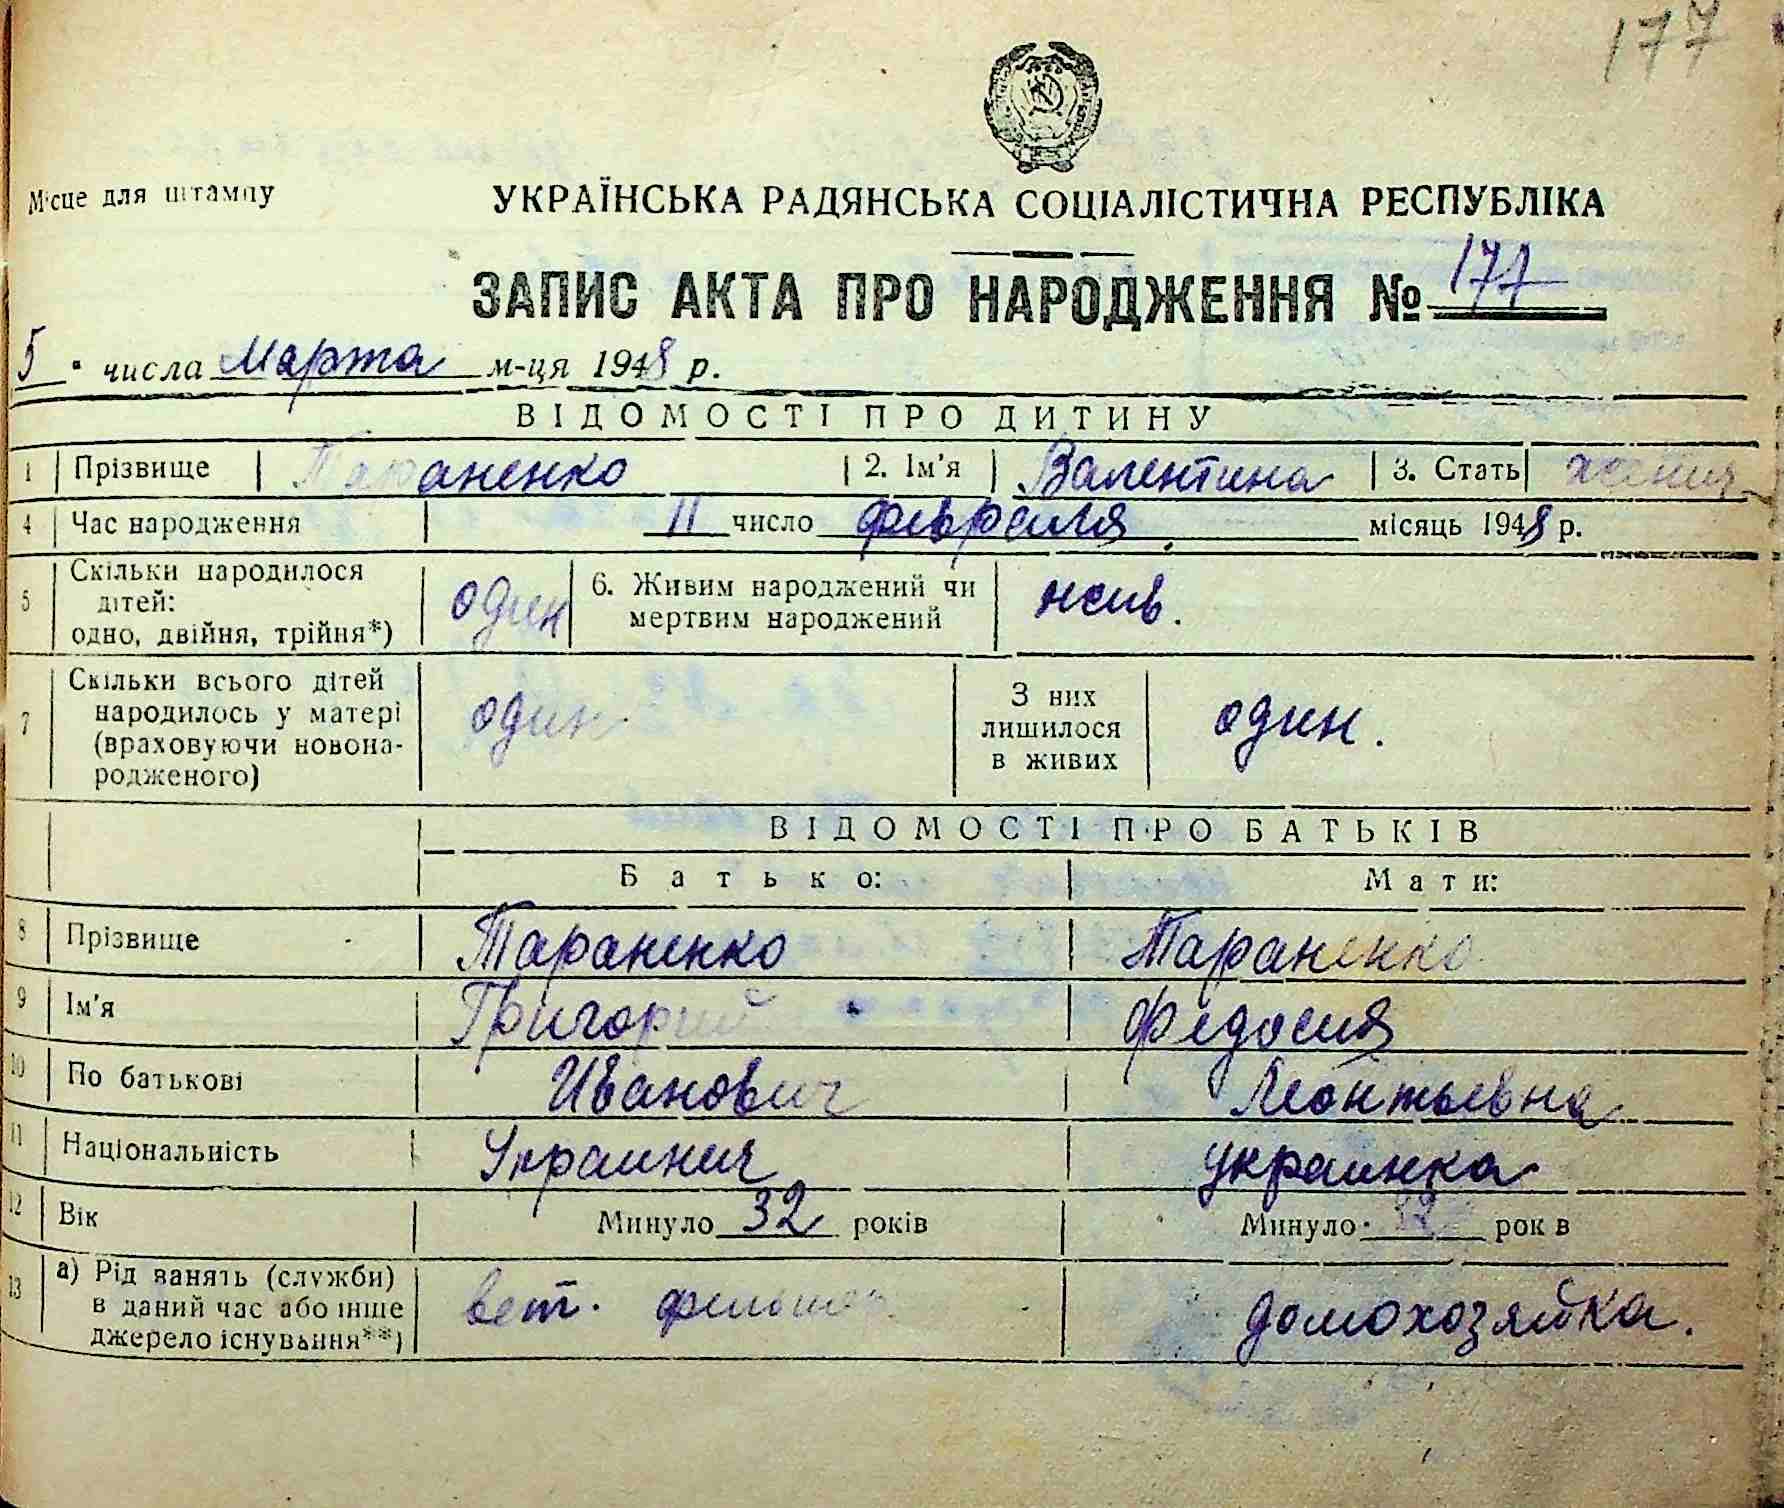 177
Місце для штампу
УКРАЇНСЬКА РАДЯНСЬКА СОЦІАЛІСТИЧНА РЕСПУБЛІКА
ЗАПИС АКТА ПРО НАРОДЖЕННЯ № 177
5 числа Марта м-ця 1948 р.
ВІДОМОСТІ ПРО ДИТИНУ
1 Прізвище Тараненко 2. Ім'я Валентина 3. Стать
4 Час народження 11 число февраля місяць 1948 р.
5 Скільки народилося дітей: одно, двійня, трійня*) один 6. Живим народжений чи мертвим народжений жив.
7 Скільки всього дітей народилось у матері (враховуючи новонародженого) один З них лишилося в живих один.
ВІДОМОСТІ ПРО БАТЬКІВ
Батько: Мати:
8 Прізвище Тараненко Тараненко
9 Ім'я Григорий Федосия
10 По батькові Иванович Леонтьевна
11 Національність Украинец украинка
12 Вік Минуло 32 років Минуло років
13 а) Рід занять (служби) в даний час або інше джерело існування**) вет. фельдшер домохозяйка.